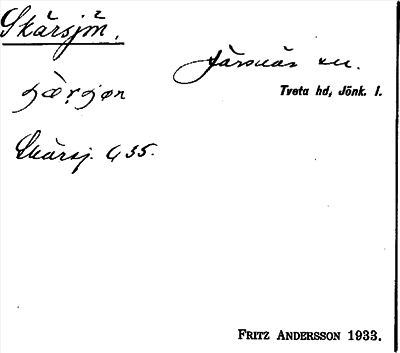 Skärsjön.
Järsnäs sn.
Tveta hd, Jönk. l.
Skärsj. G 35.
FRITZ ANDERSSON 1933.